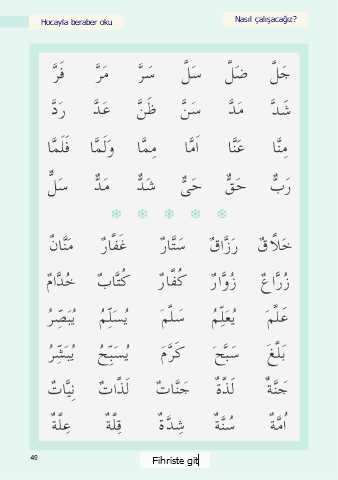 Hocayla beraber oku
Nasıl çalışacağız?
جَلَّ ضَلَّ سَلَّ سَرَّ مَرَّ فَرَّ
شَدَّ مَدَّ سَنَّ ظَنَّ عَدَّ رَدَّ
مِنَّا عَنَّا اَمَّا مِمَّا وَلَمَّا فَلَمَّا
رَبٌّ حَقٌّ حَىٌّ شَدٌّ مَدٌّ سَلٌّ
خَلَّاقٌ رَزَّاقٌ سَتَّارٌ غَفَّارٌ مَنَّانٌ
زُرَّاعٌ زُوَّارٌ كُفَّارٌ كُتَّابٌ خُدَّامٌ
عَلِّمَ يُعَلِّمُ سَلَّمَ يُسَلِّمُ يُبَصِّرُ
بَلَّغَ سَبَّحَ كَرَّمَ يُسَبِّحُ يُبَشِّرُ
جَنَّةٌ لَذَّةٌ جَنَّاتٌ لَذَّاتٌ نِيَّاتٌ
اُمَّةٌ سُنَّةٌ شِدَّةٌ قِلَّةٌ عِلَّةٌ
40
Fihriste git